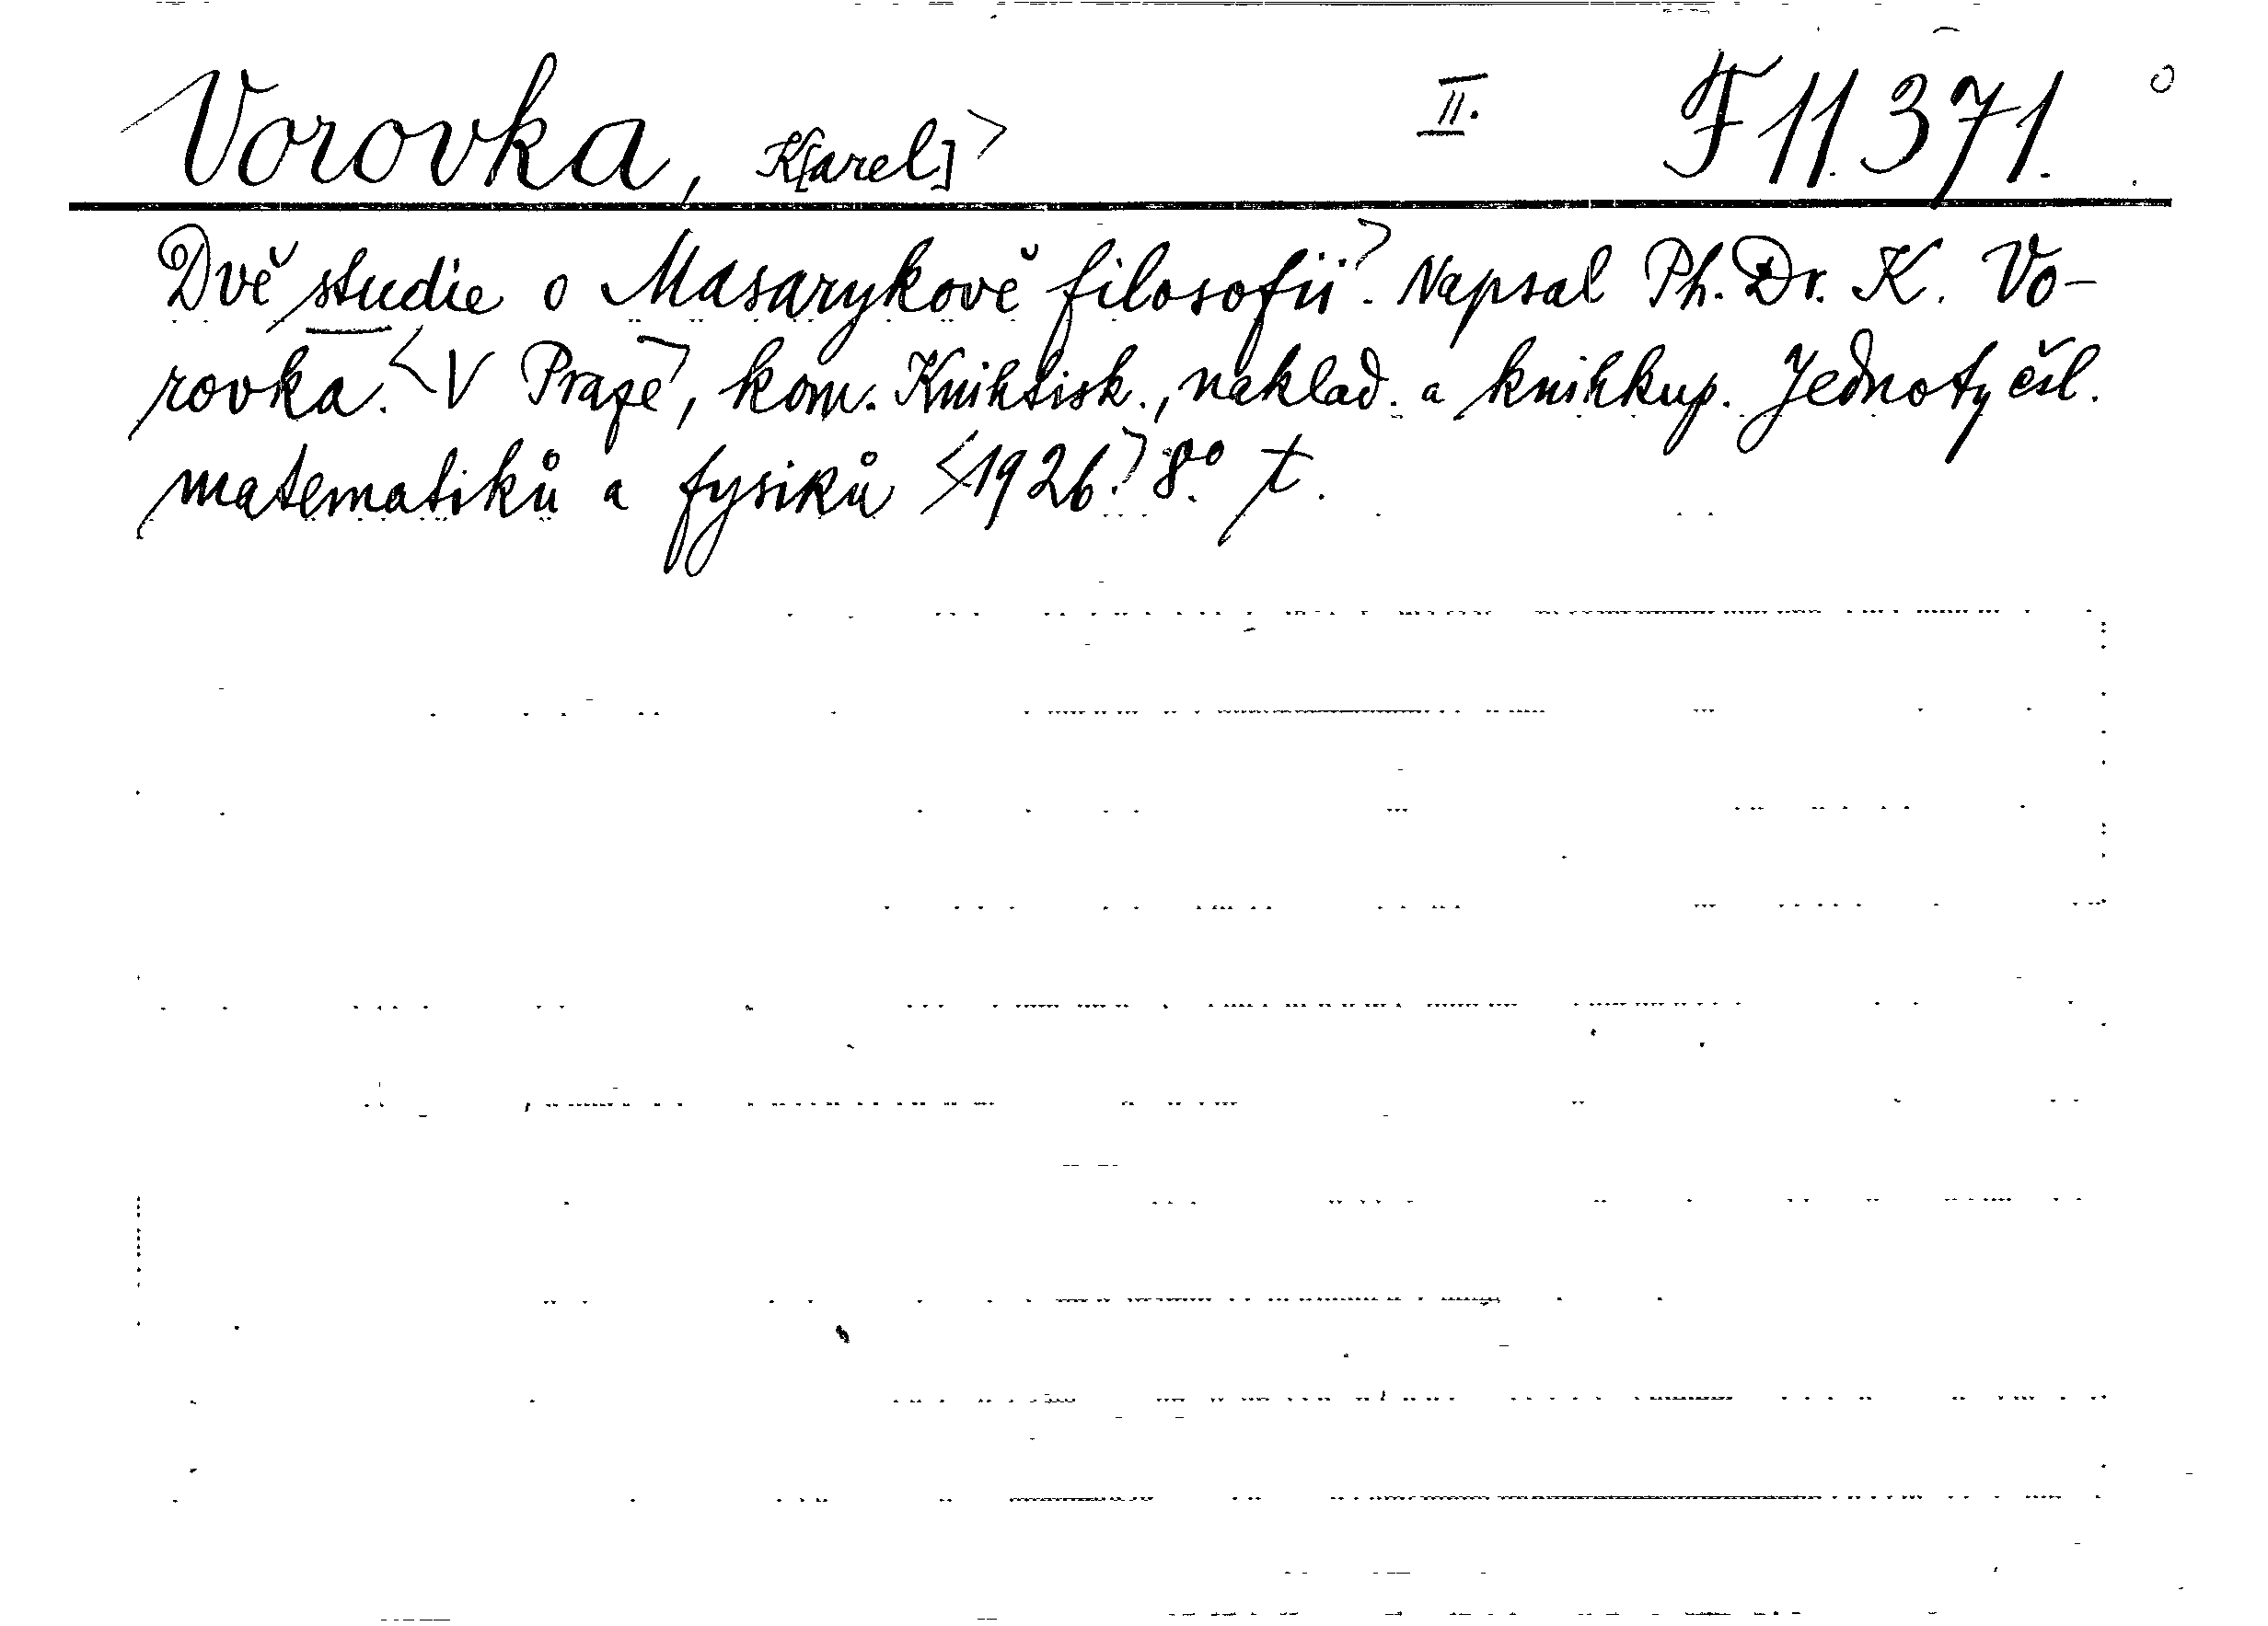 Vorovka, K[arel] II. F 11.371.
Dvě studie o Masarykově filosofii. Napsal Ph. Dr. K. Vo-
rovka. V Praze, kom. Knihtisk., naklad. a knihkup. Jednoty čsl.
matematiků a fysiků 1926. 8° t.